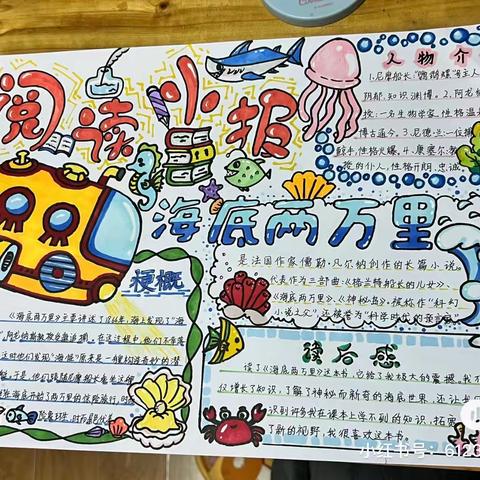 阅读小报
人物介
1.尼摩船长"鹦鹉螺"号主人
阴郁,知识渊博。2.阿龙纳
授:一与生物学家,性格温
博古通今。3.尼德·兰一位捕
鲸手,性格火爆。4.康塞尔:教
授的仆人,性格开朗,忠诚
海底两万里
是法国作家儒勒·凡尔纳创作的长篇小说。
代表作为三部曲:《格兰特船长的儿女》、
《海底两万里》、《神秘岛》被称作"科幻
小说之父",还被誉为"科学时代的预言家"
梗概
《海底两万里》主要讲述了1866年,海上发现了"海
阿龙纳斯教授应邀追捕,在这过程中,他们不幸落
这时他们发现"海怪"原来是一艘构造奇妙的潜
于是,他们跟随尼摩船长乘坐这艘
在海底开始了两万里的优险旅行,时而
险象环生,时而
读后感
读了《海底两万里》这本书,它给了我极大的震撼。我不
仅增长了知识,了解了神秘而新奇的海底世界,还让我
识到许多我在课本上学不到的知识,拓宽
了新的视野,我很喜欢这本书。
小红书号:6120